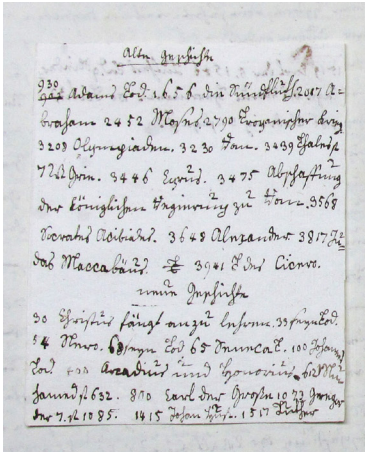 Alte Geschichte
930
Adams Tod. 1656 die Sündfluth. 2017 A-
braham 2452 Moses. 2790 Trojanischer Krieg
3208 Olympiaden. 3230 Rom. 3439 Thales
7 3446 Cyrus. 3475 Abschaffung
der Königlichen Regierung zu Rom. 3568
Socrates Alcibiades. 3648 Alexander 3817 Ju-
das Maccabäus. 3941 T des Cicero.
neue Geschichte
30 Christus fängt an zu lehren. 33 seyn Tod.
54 Nero. 68 seyn Tod 65 Seneca t. 100 Johannes
Tod. 400 Arcadius und Honorius. 612 Mu-
hamed st 632. 800 Carl der Große 1073 Gregor
der 7. st 1085. 1415 Johan Huß. 1517 Luther